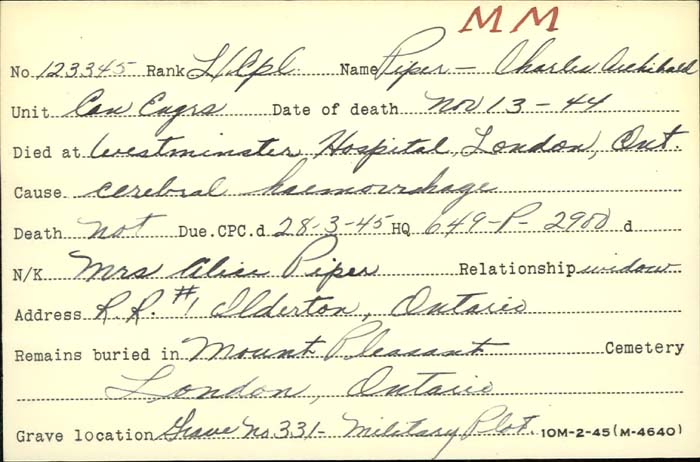 MM
No. 123345 Rank L/Cpl. Name Piper - Charles Archibald
Unit Can Engrs Date of death Nov 13-44
Died at Westminster Hospital, London, Ont.
Cause cerebral haemorrhage
Death not Due. CPC. d 28-3-45 HQ 649-P-2980 d
N/K Mrs Alice Piper Relationship widow
Address R.R. #1 Ilderton, Ontario
Remains buried in Mount Pleasant Cemetery
London, Ontario
Grave location Grave No 331- Military Plot. 10M-2-45 (M-4640)